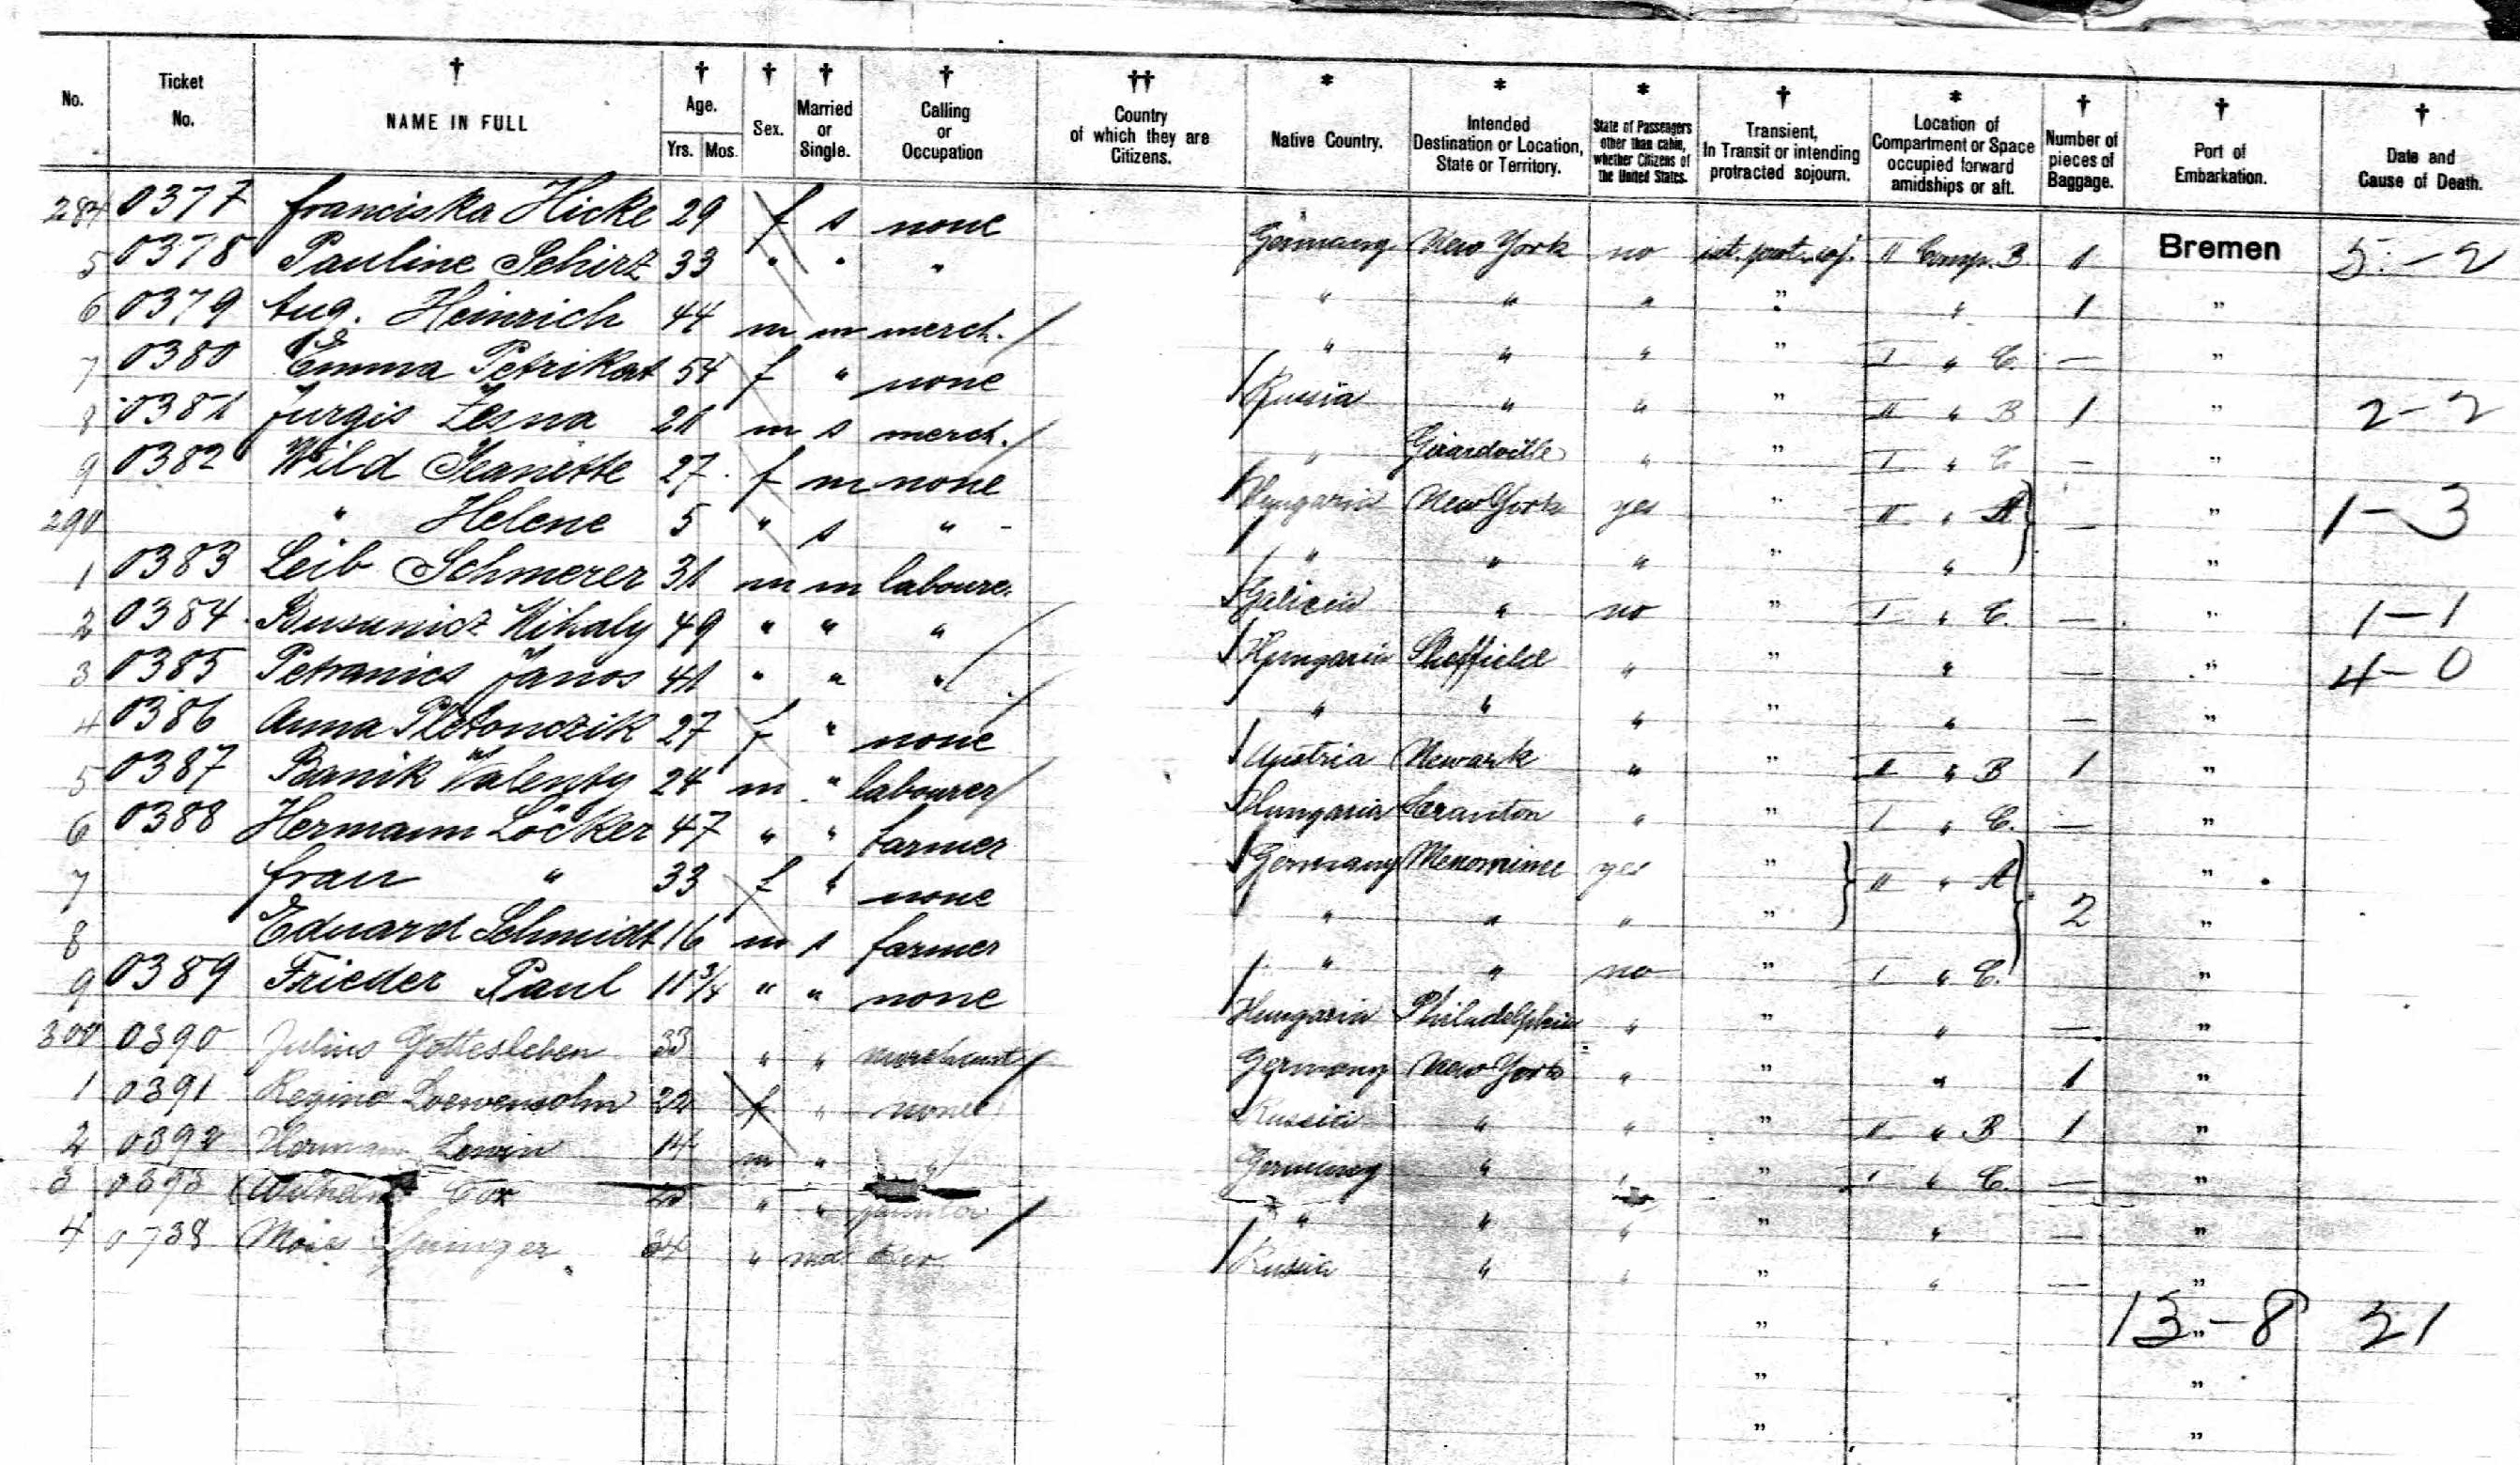 No. Ticket No. † NAME IN FULL † Age. Yrs. Mos. † Sex. † Married or Single. † Calling or Occupation †† Country of which they are Citizens. * Native Country. * Intended Destination or Location, State or Territory. * State of Passengers other than cabin, whether Citizens of the United States. † Transient, In Transit or intending protracted sojourn. * Location of Compartment or Space occupied forward amidships or aft. † Number of pieces of Baggage. † Port of Embarkation. † Date and Cause of Death.
284 0377 Franciska Hicke 29 f s none Germany New York no int. prot. soj. II Comp. B 1 Bremen 5-2
5 0378 Pauline Schirz 33 " " " " " " " " 1 "
6 0379 Aug. Heinrich 44 m m merch. " " " " I " C. — "
7 0380 Emma Petrikat 54 f " none Russia " " " II " B 1 " 2-2
8 0381 Jurgis Zesna 21 m s merch. " Girardville " " I " C — "
9 0382 Wild Jeanette 27 f m none Hungaria New York yes " II " A — " 1-3
290 " Helene 5 " s " " " " " " "
1 0383 Leib Schmerer 31 m m laboure. Galicia " no " I " C. — " 1-1
2 0384 Mihaly 49 " " " Hungaria Sheffield " " " — " 4-0
3 0385 Petranics Janos 41 " " " " " " " " — "
4 0386 Anna Pletonczik 27 f " none Austria Newark " " II " B 1 "
5 0387 Banik Valenty 24 m " labourer Hungaria Scranton " " I " C. — "
6 0388 Hermann Löcker 47 " " farmer Germany Menominee yes " II " A "
7 frau " 33 f " none " " " " 2 "
8 Eduard Schmidt 16 m s farmer " " no " I " C. "
9 0389 Frieder Paul 11 3/4 " " none Hungaria Philadelphia " " " — "
300 0390 Julius Gottesleben 33 " " merchant Germany New York " " " 1 "
1 0391 Regina Loewensohn 22 f " none Russia " " " II " B 1 "
2 0392 Hermann Lewin 14 m " " Germany " " " I " C. — "
3 0393 Wilhelm " " " " " " " — "
4 0738 Moses 34 " md. Russia " " " " — "
" 13-8 21
" "
" "